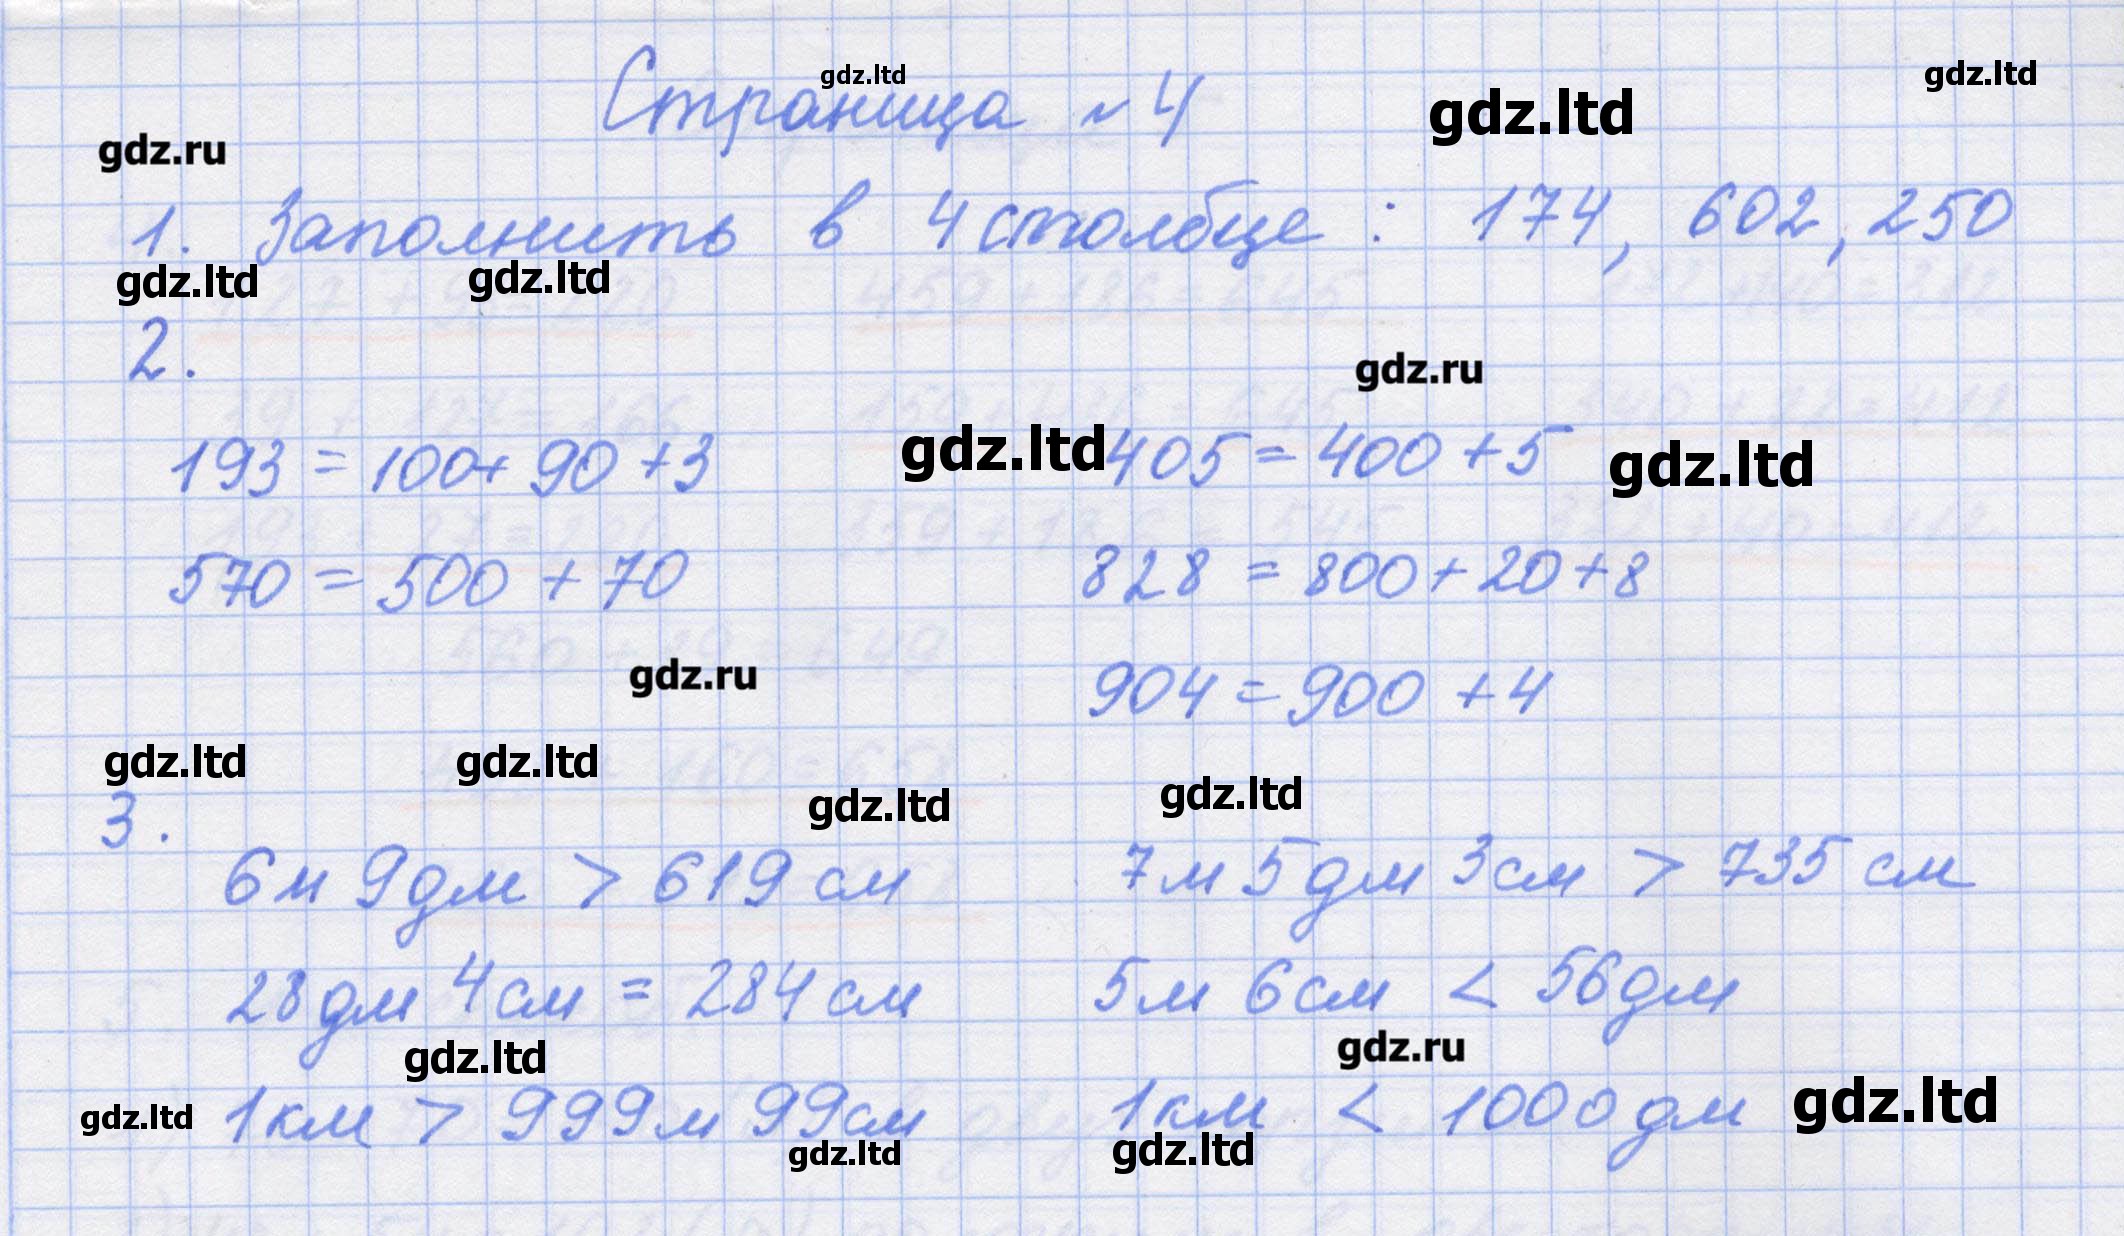 Страница №4 gdz.ltd gdz.ltd gdz.ltd
gdz.ru
1. Заполнить в 4 столбце : 174, 602, 250
gdz.ltd gdz.ltd
2.
gdz.ru
193 = 100 + 90 + 3 gdz.ltd 405 = 400 + 5 gdz.ltd
570 = 500 + 70 828 = 800 + 20 + 8
gdz.ru 904 = 900 + 4
gdz.ltd gdz.ltd gdz.ltd gdz.ltd
3.
6м 9дм > 619 см 7м 5дм 3см > 735 см
28дм 4см = 284 см 5м 6см < 56дм
gdz.ltd gdz.ru
gdz.ltd 1км > 999м 99см 1км < 1000дм gdz.ltd
gdz.ltd gdz.ltd